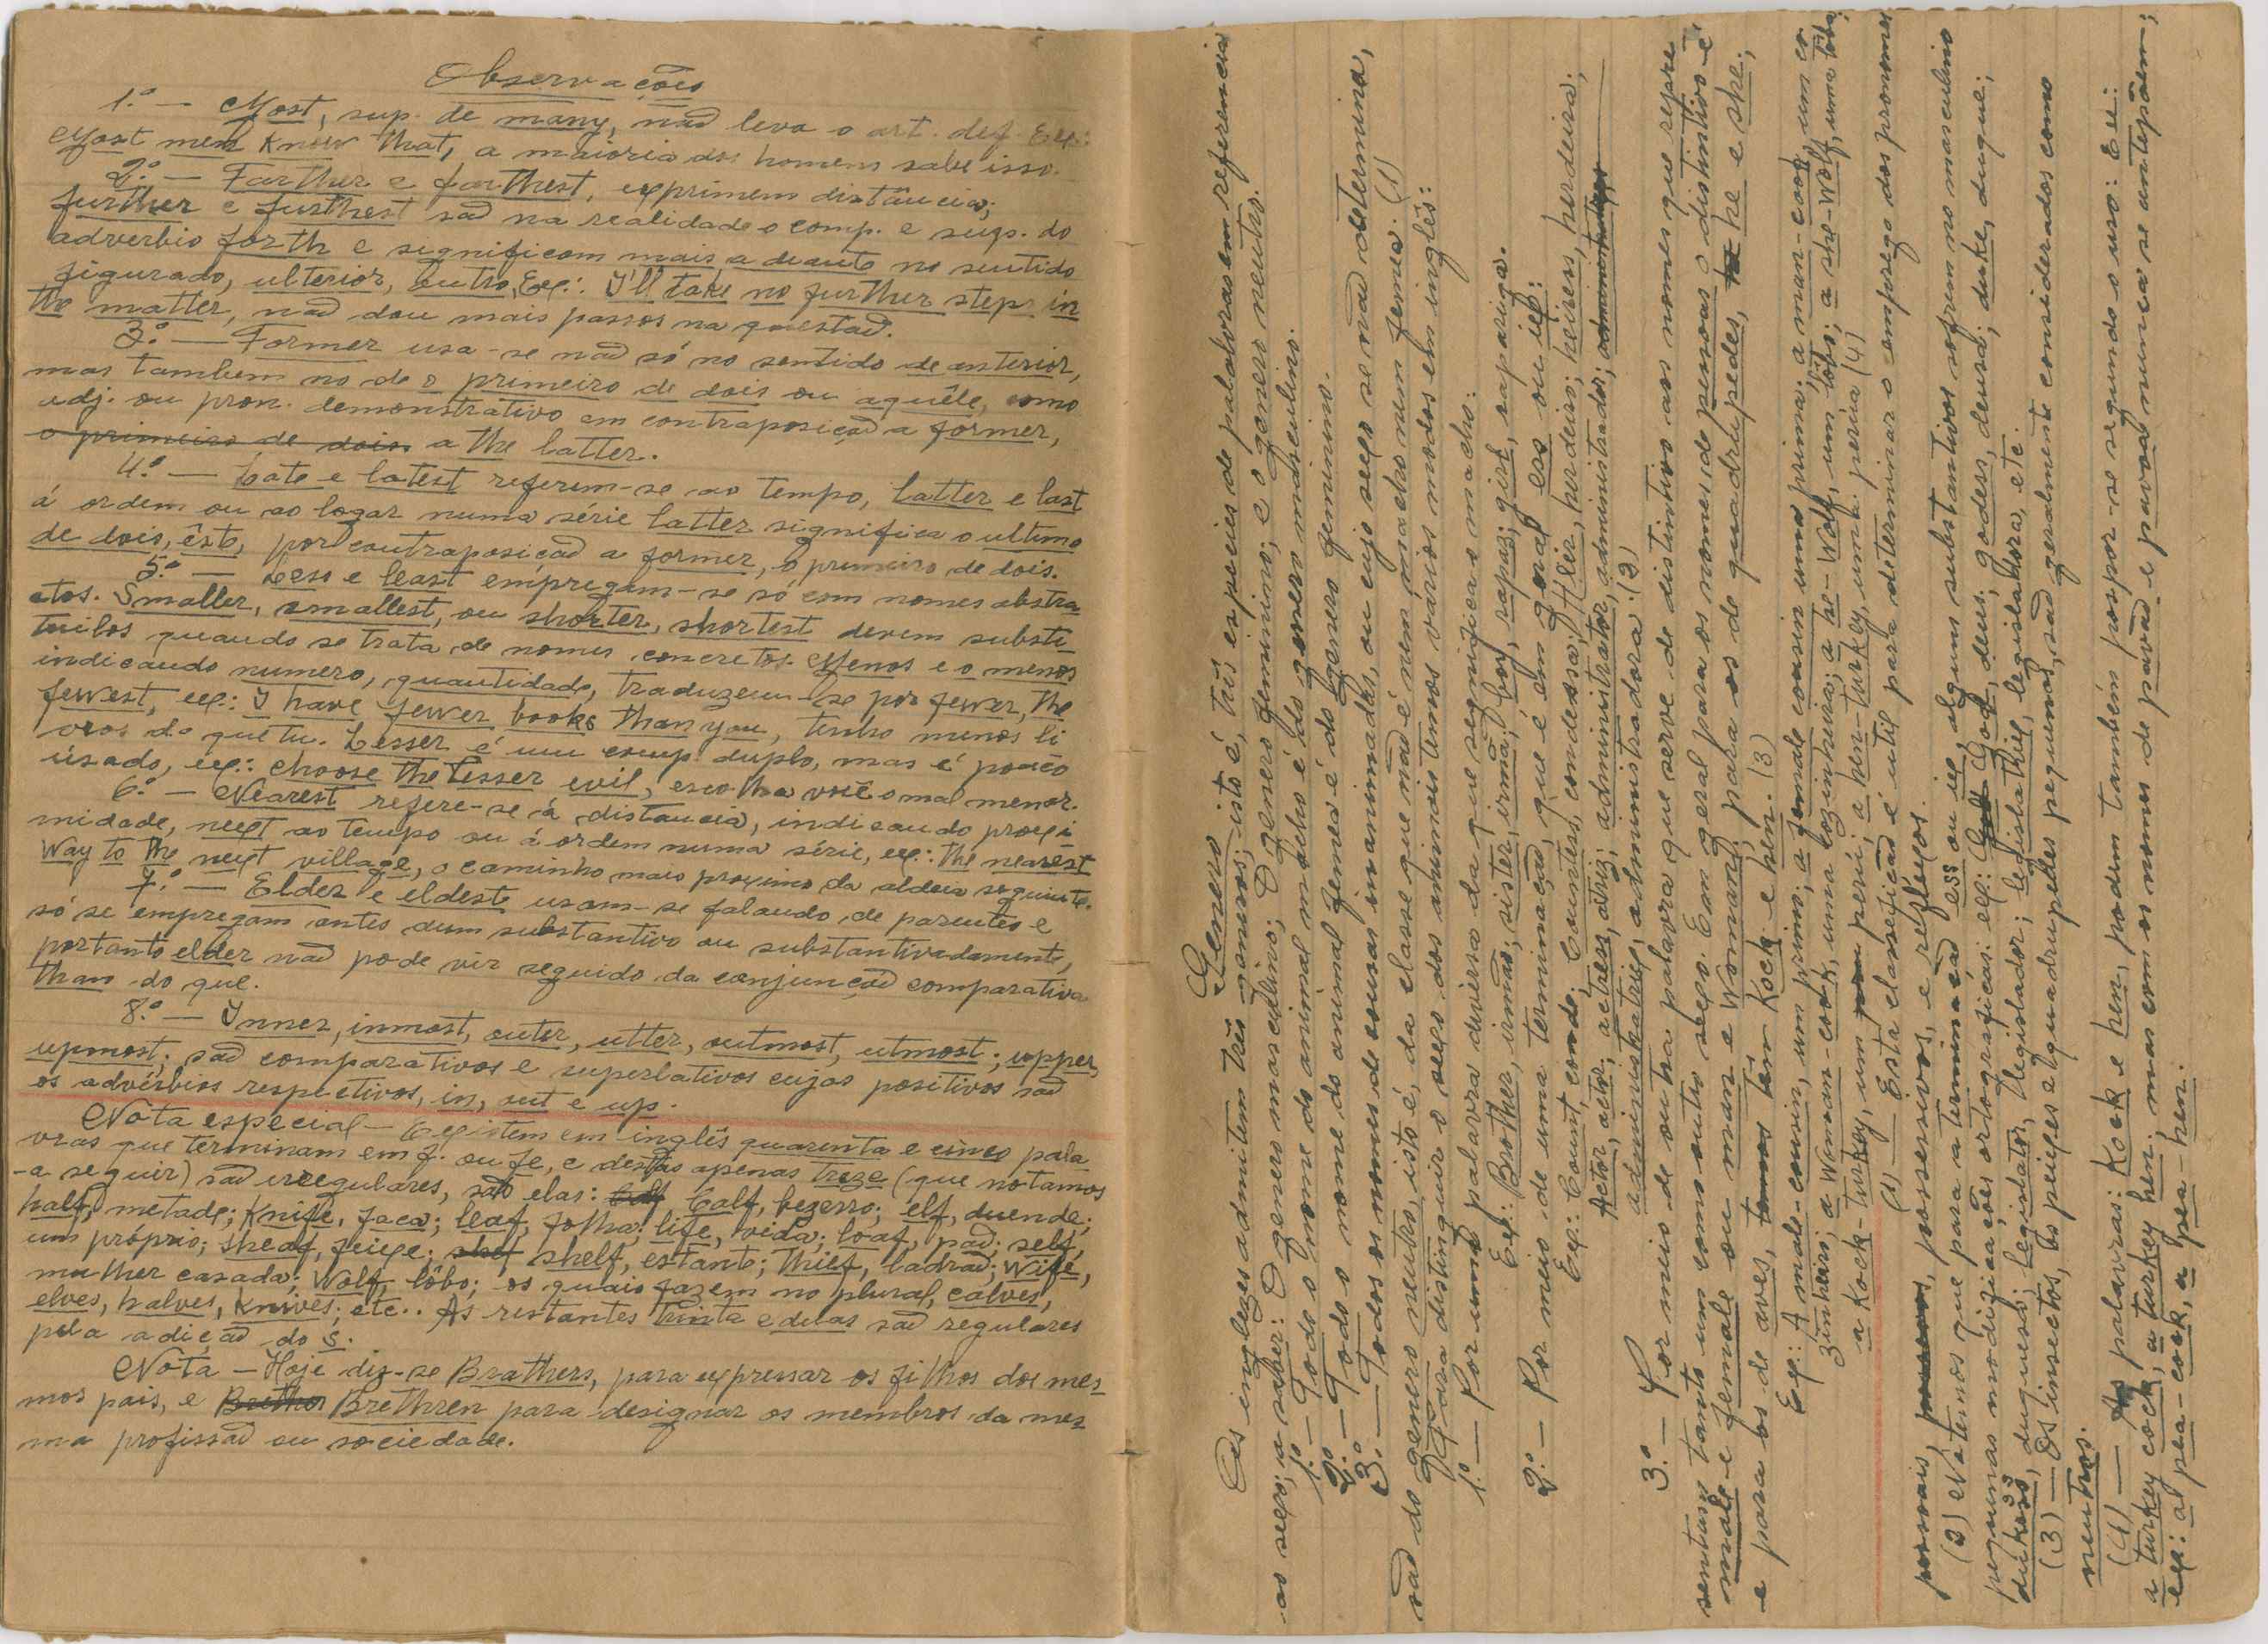 Observações
1.º — Most, sup. de many, não leva o art. def. Ex.:
Most men know that, a maioria dos homens sabe isso.
2.º — Farther e farthest, exprimem distância;
further e furthest são na realidade o comp. e sup. do
adverbio forth e significam mais a deante no sentido
figurado, ulterior, outro, Ex.: I'll take no further steps in
the matter, não dou mais passos na questão.
3.º — Former usa-se não só no sentido de anterior,
mas tambem no de o primeiro de dois ou aquêle, como
adj. ou pron. demonstrativo em contraposição a former,
o primeiro de dois a the latter.
4.º — Late e latest referem-se ao tempo, latter e last
á ordem ou ao logar numa série latter significa o ultimo
de dois, êste, por contraposição a former, o primeiro de dois.
5.º — Less e least empregam-se só com nomes abstra
ctos. Smaller, smallest, ou shorter, shortest devem substi-
tuilos quando se trata de nomes concretos. Menos e o menos
indicando numero, quantidade, traduzem-se por fewer, the
fewest, ex.: I have fewer books than you, tenho menos li
vros do que tu. Lesser é um comp. duplo, mas é pouco
usado, ex.: choose the lesser evil, escolha você o mal menor.
6.º — Nearest refere-se á distancia, indicando proxi
midade, next ao tempo ou á ordem numa série, ex.: the nearest
way to the next village, o caminho mais proximo da aldeia seguinte.
7.º — Elder e eldest usam-se falando de parentes e
só se empregam antes dum substantivo ou substantivadamente,
portanto elder não pode vir seguido da conjunção comparativa
than do que.
8.º — Inner, inmost, outer, utter, outmost, utmost; upper,
upmost; são comparativos e superlativos cujos positivos são
os advérbios respectivos, in, out e up.
Nota especial — Existem em inglês quarenta e cinco pala
vras que terminam em f. ou fe, e destas apenas treze (que notamos
-a seguir) são irregulares, são elas: Calf, bezerro; elf, duende;
half, metade; Knife, faca; leaf, folha; life, vida; loaf, pão; self,
um próprio; sheaf, feixe; shelf, estante; thief, ladrão; wife,
mulher casada; wolf, lôbo; os quais fazem no plural, calves,
elves, halves, knives; etc.. As restantes trinta e duas são regulares
pela adição do s.
Nota — Hoje diz-se Brathers, para expressar os filhos dos mes
mos pais, e Brethren para designar os membros da mes
ma profissão ou sociedade.
Genero
Os inglezes admitem três generos; isto é, três especies de palavras em referencia
ao sexo; a saber: O genero masculino; O genero feminino; e o genero neutro.
1.º — Todo o nome do animal macho é do genero masculino.
2.º — Todo o nome do animal femea é do genero feminino.
3.º — Todos os nomes de cousas inanimadas, ou cujo sexo se não determina,
são do genero neutro, isto é, da classe que não é nem macho nem femea. (1)
Para distinguir o sexo dos animais temos vários modos em inglês:
1.º — Por uma palavra diversa da que significa o macho:
Ex.: Brother, irmão; sister, irmã; boy, rapaz; girl, rapariga.
2.º — Por meio de uma terminação, que é em geral ess ou ix:
Ex.: Count, conde; Countess, condessa; Heir, herdeiro; heiress, herdeira;
Actor, actor; actress, atriz; administrator, administrador;
administratrix, administradora. (2)
3.º — Por meio de outra palavra que serve de distintivo aos nomes que repre
sentam tanto um como outro sexo. Em geral para os nomes de pessoas o distintivo é
male e female ou man e woman; para os de quadrupedes, he e she;
e para os de aves, tem Kock e hen. (3)
Ex.: A male-cousin, um primo; a female cousin uma prima; a man-cook, um co
zinheiro; a woman-cook, uma cozinheira; a he-wolf, um lôbo; a she-wolf, uma lôba;
a Kock-turkey, um perú; a hen-turkey, uma perúa (4)
(1) — Esta classificação é util para determinar o emprego dos pronomes
pessoais, possessivos, e reflexos.
(2) Notemos que para a terminação ess ou ix, alguns substantivos sofrem no masculino
pequenas modificações ortográficas: ex: God, deus, godess, deusa; duke, duque;
dukess, duqueza; legislator, legislador; legislathix, legisladora, etc.
(3) — Os insectos, os peixes e quadrupedes pequenos, são geralmente considerados como
neutros.
(4) — As palavras: Kock e hen, podem também pospor-se segundo o uso: Ex:
a turkey cock, a turkey hen; mas com os nomes de pávão e pavoa nunca se antepõem;
ex: a pea-cock, a pea-hen.